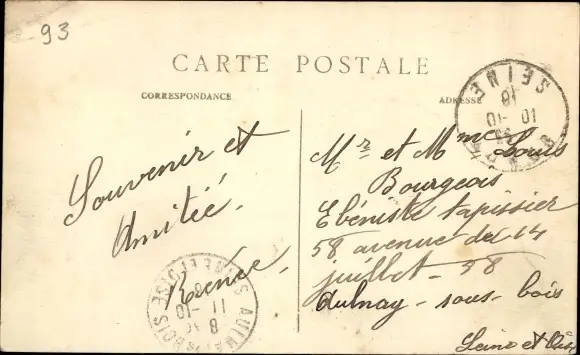 93
CARTE POSTALE
CORRESPONDANCE
ADRESSE
Souvenir et
Amitié.
Renée.
Mr et Mme Louis
Bourgeois
Ebéniste tapissier
58 avenue du 14
juillet - 58
Aulnay - sous - bois
Seine et Oise
SEINE
18
10 -10
AULNAY BOIS
SEINE ET OISE
11 -10
8